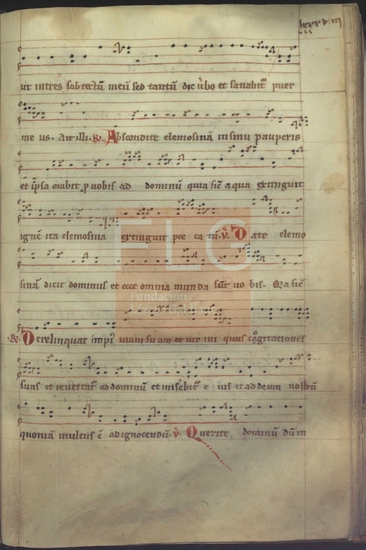 lxxxviiii
ut intres sub tectū meū sed tantū dic ūbo et sanabit̄ puer
me us. Ant. illi. R̄. Abscondite elemosinā in sinu pauperis
et ip̄sa orabit p̄ vobis ad dominū quia sic̄ aqua extinguit
ignē ita elemosina extinguit pec ca tū. V̄. Date elemo
sinā dicit dominus et ecce omnia munda sūt vo bis. Q̄ia sic̄
R̄. Derelinquat impi' uiam su am et uir ini quus cogitationes
suas et reuertat̄ ad dominū et miseb̄it̄ e ius et ad deum nostrū
quoniā multus ē ad ignocendū. V̄. Querite dominū dūm
FLG
Fundación